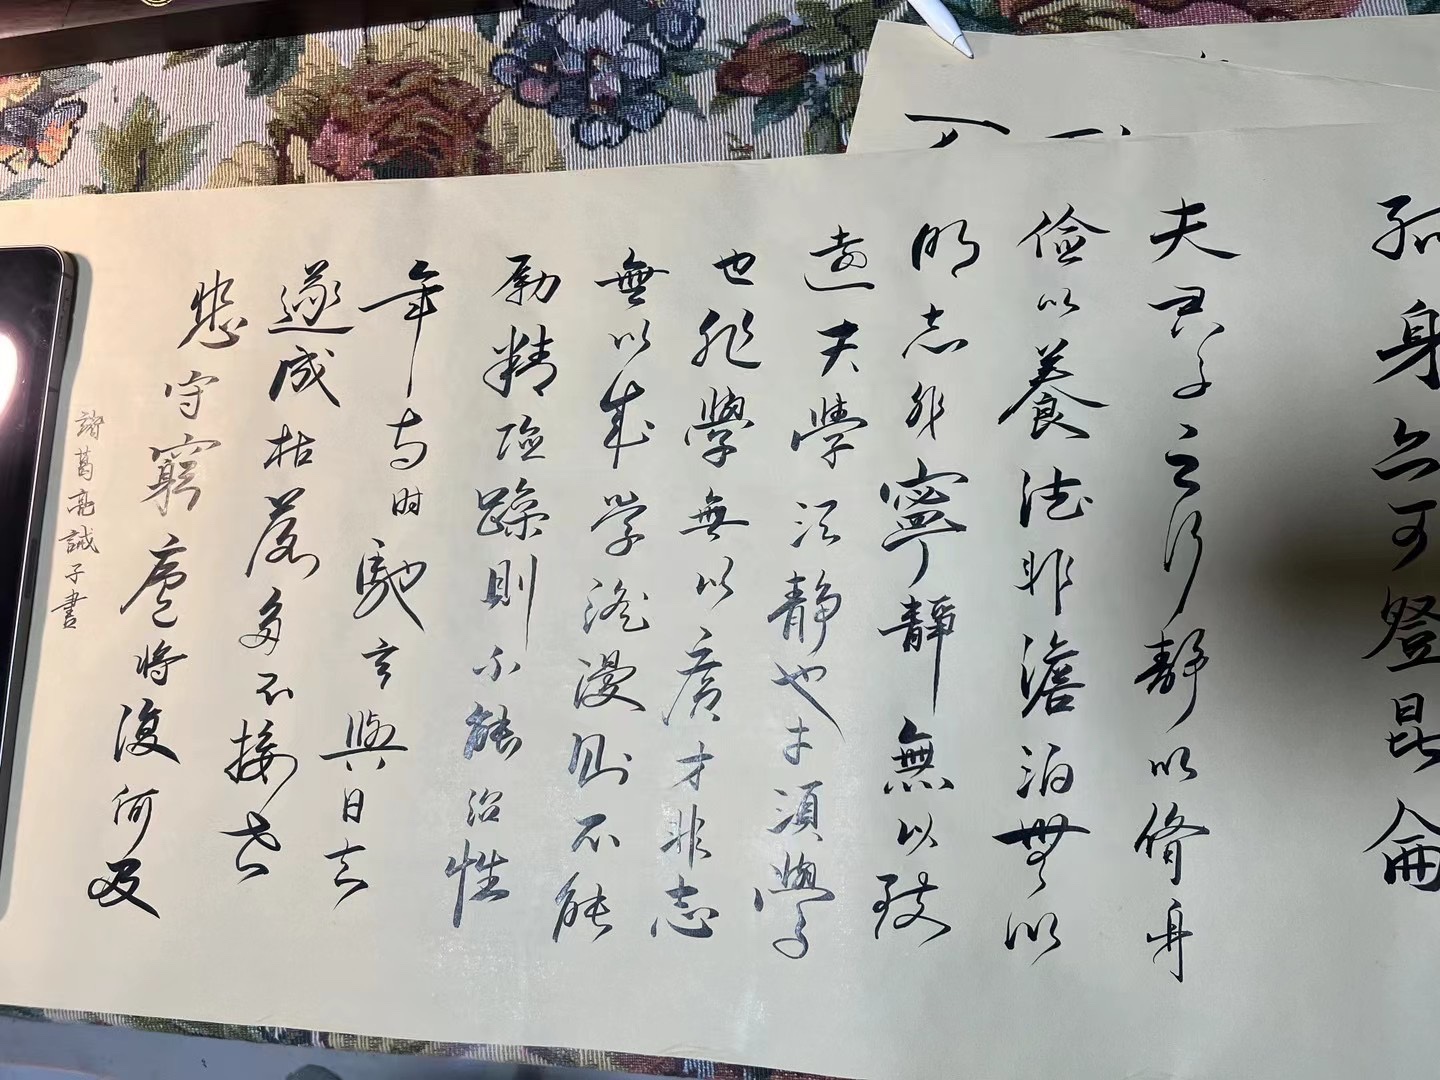 孤身亦可登昆侖
夫君子之行靜以脩身
儉以養德非澹泊無以
明志非寧靜無以致
遠夫學須靜也才須學
也非學無以廣才非志
無以成學淫漫則不能
勵精險躁則不能治性
年与时馳意與日去
遂成枯落多不接世
悲守窮廬將復何及
諸葛亮誡子書